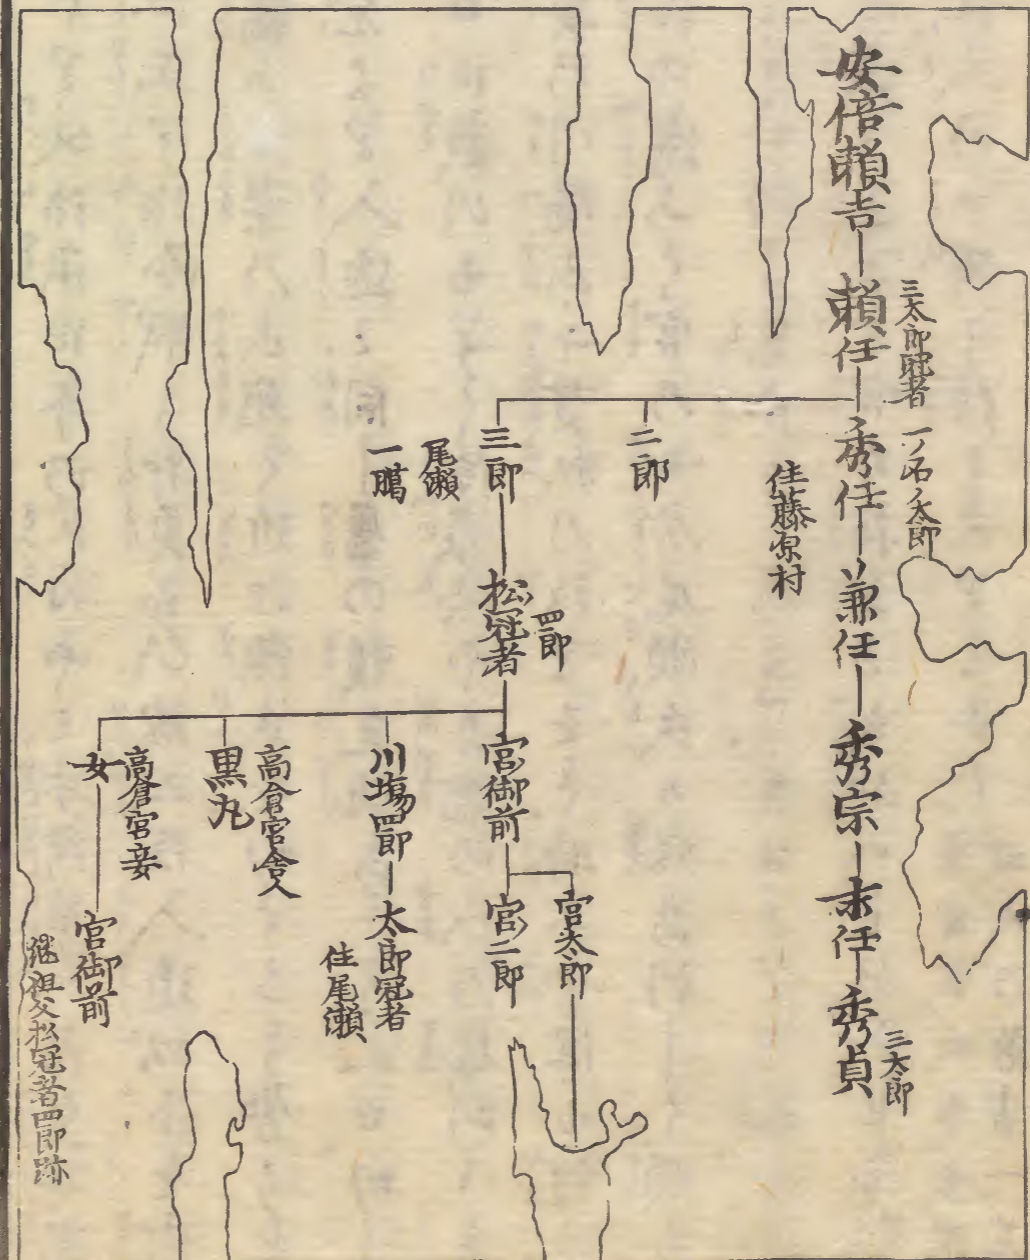 安倍頼吉
頼任
三太郎冠者
秀任
一ノ名ノ太郎
兼任
秀宗
末任
秀貞
三太郎
住藤原村
二郎
三郎
尾瀬
一鵬
松冠者
四郎
宮御前
宮太郎
宮二郎
川塲四郎
太郎冠者
住尾瀬
高倉宮舎人
黒丸
高倉宮妾
女
宮御前
継祖父松冠者四郎跡